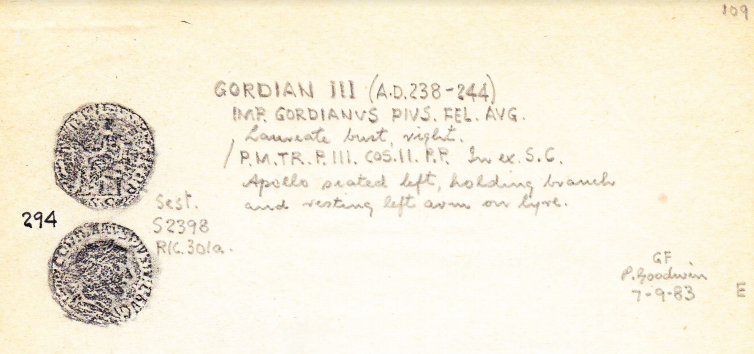 109
GORDIAN III (A.D. 238-244)
IMP. GORDIANVS PIVS. FEL. AVG.
Laureate bust, right.
/ P.M. TR. P. III. COS. II. P.P. In ex. S.C.
Apollo seated left, holding branch
and resting left arm on lyre.
294
Sest.
S2398
RIC. 301a.
GF
P. Goodwin
7-9-83
E